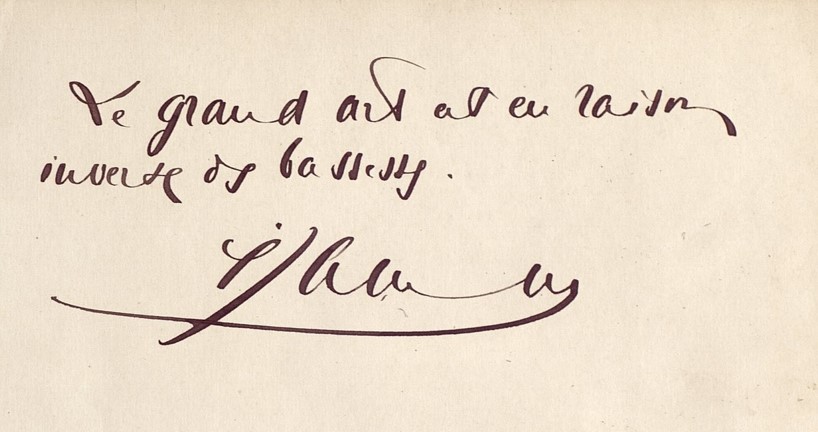 Le grand art est en raison
inverse des bassesses.